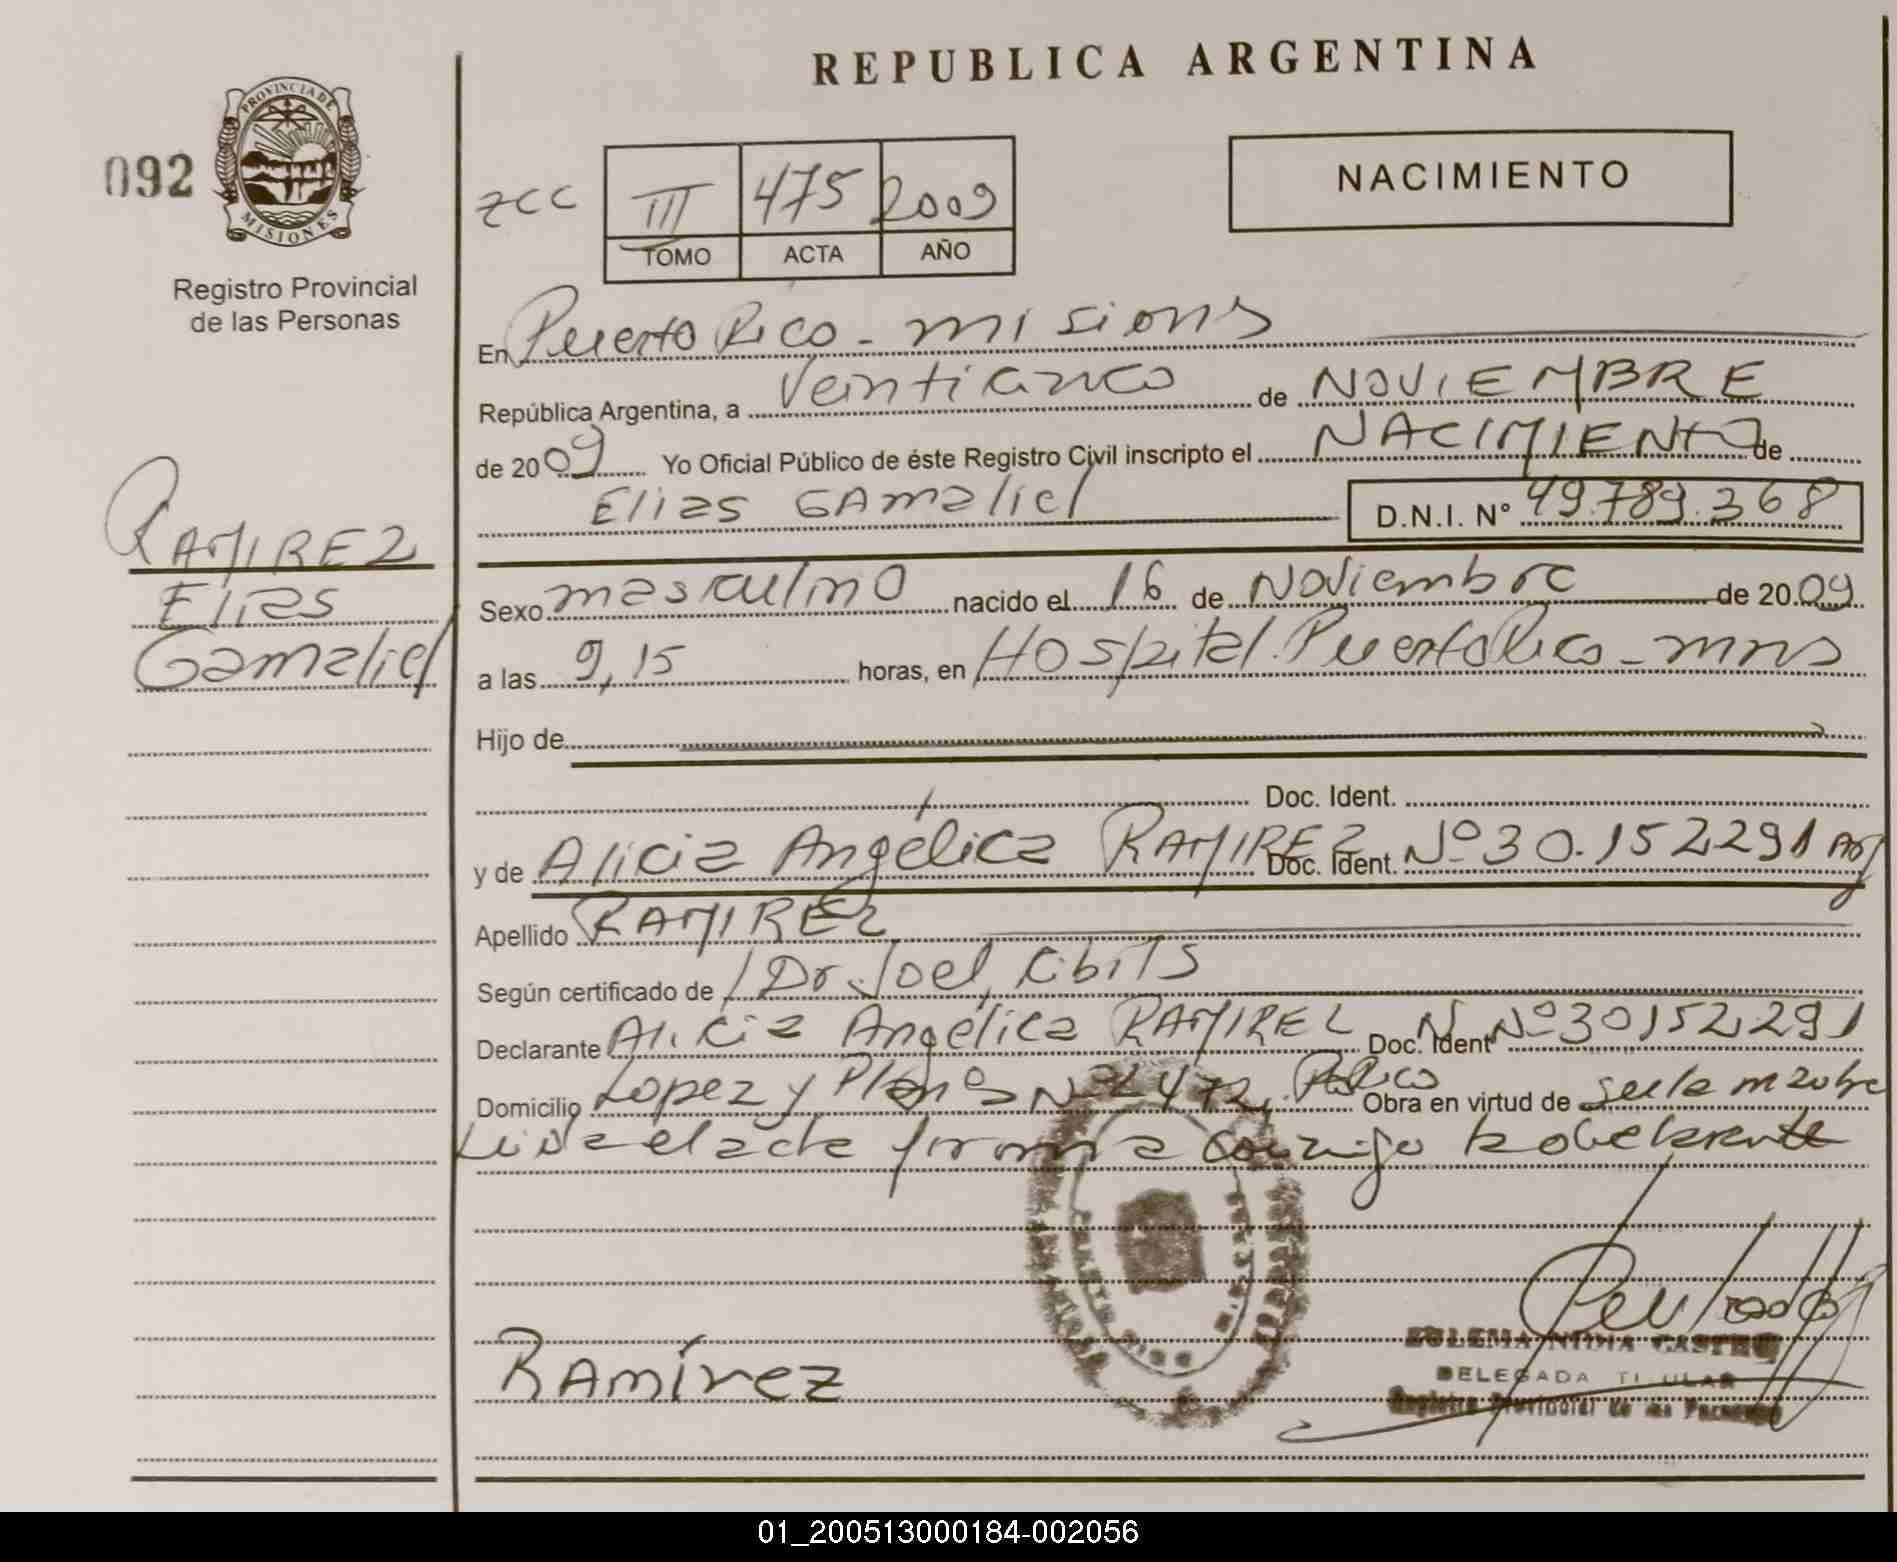 REPUBLICA ARGENTINA
092
PROVINCIA DE
MISIONES
Registro Provincial
de las Personas
zcc
III 475 2009
TOMO ACTA AÑO
NACIMIENTO
En Puerto Rico - misions
República Argentina, a Veinticinco de NOVIEMBRE
de 2009 Yo Oficial Público de éste Registro Civil inscripto el NACIMIENTO de
Elias GAmaliel D.N.I. N° 49.789.368
RAMIREZ
Elias
Gamaliel
Sexo masculino nacido el 16 de Noviembre de 2009
a las 9,15 horas, en Hospital. Puerto Rico - mns
Hijo de
Doc. Ident.
y de Alicia Angélica RAMIREZ Doc. Ident. Nº 30.152291 Arg
Apellido RAMIREZ
Según certificado de Dr. Joel
Declarante Alicia Angélica RAMIREZ Doc. Ident Nº 30152291
Domicilio Lopez y Planes Nº 2472, P. Rico Obra en virtud de ser la madre
Leida el acta firma conmigo la declarante
Ramírez
ZULEMA NIDIA CASTRO
DELEGADA TITULAR
Registro Provincial de las Personas
01_200513000184-002056